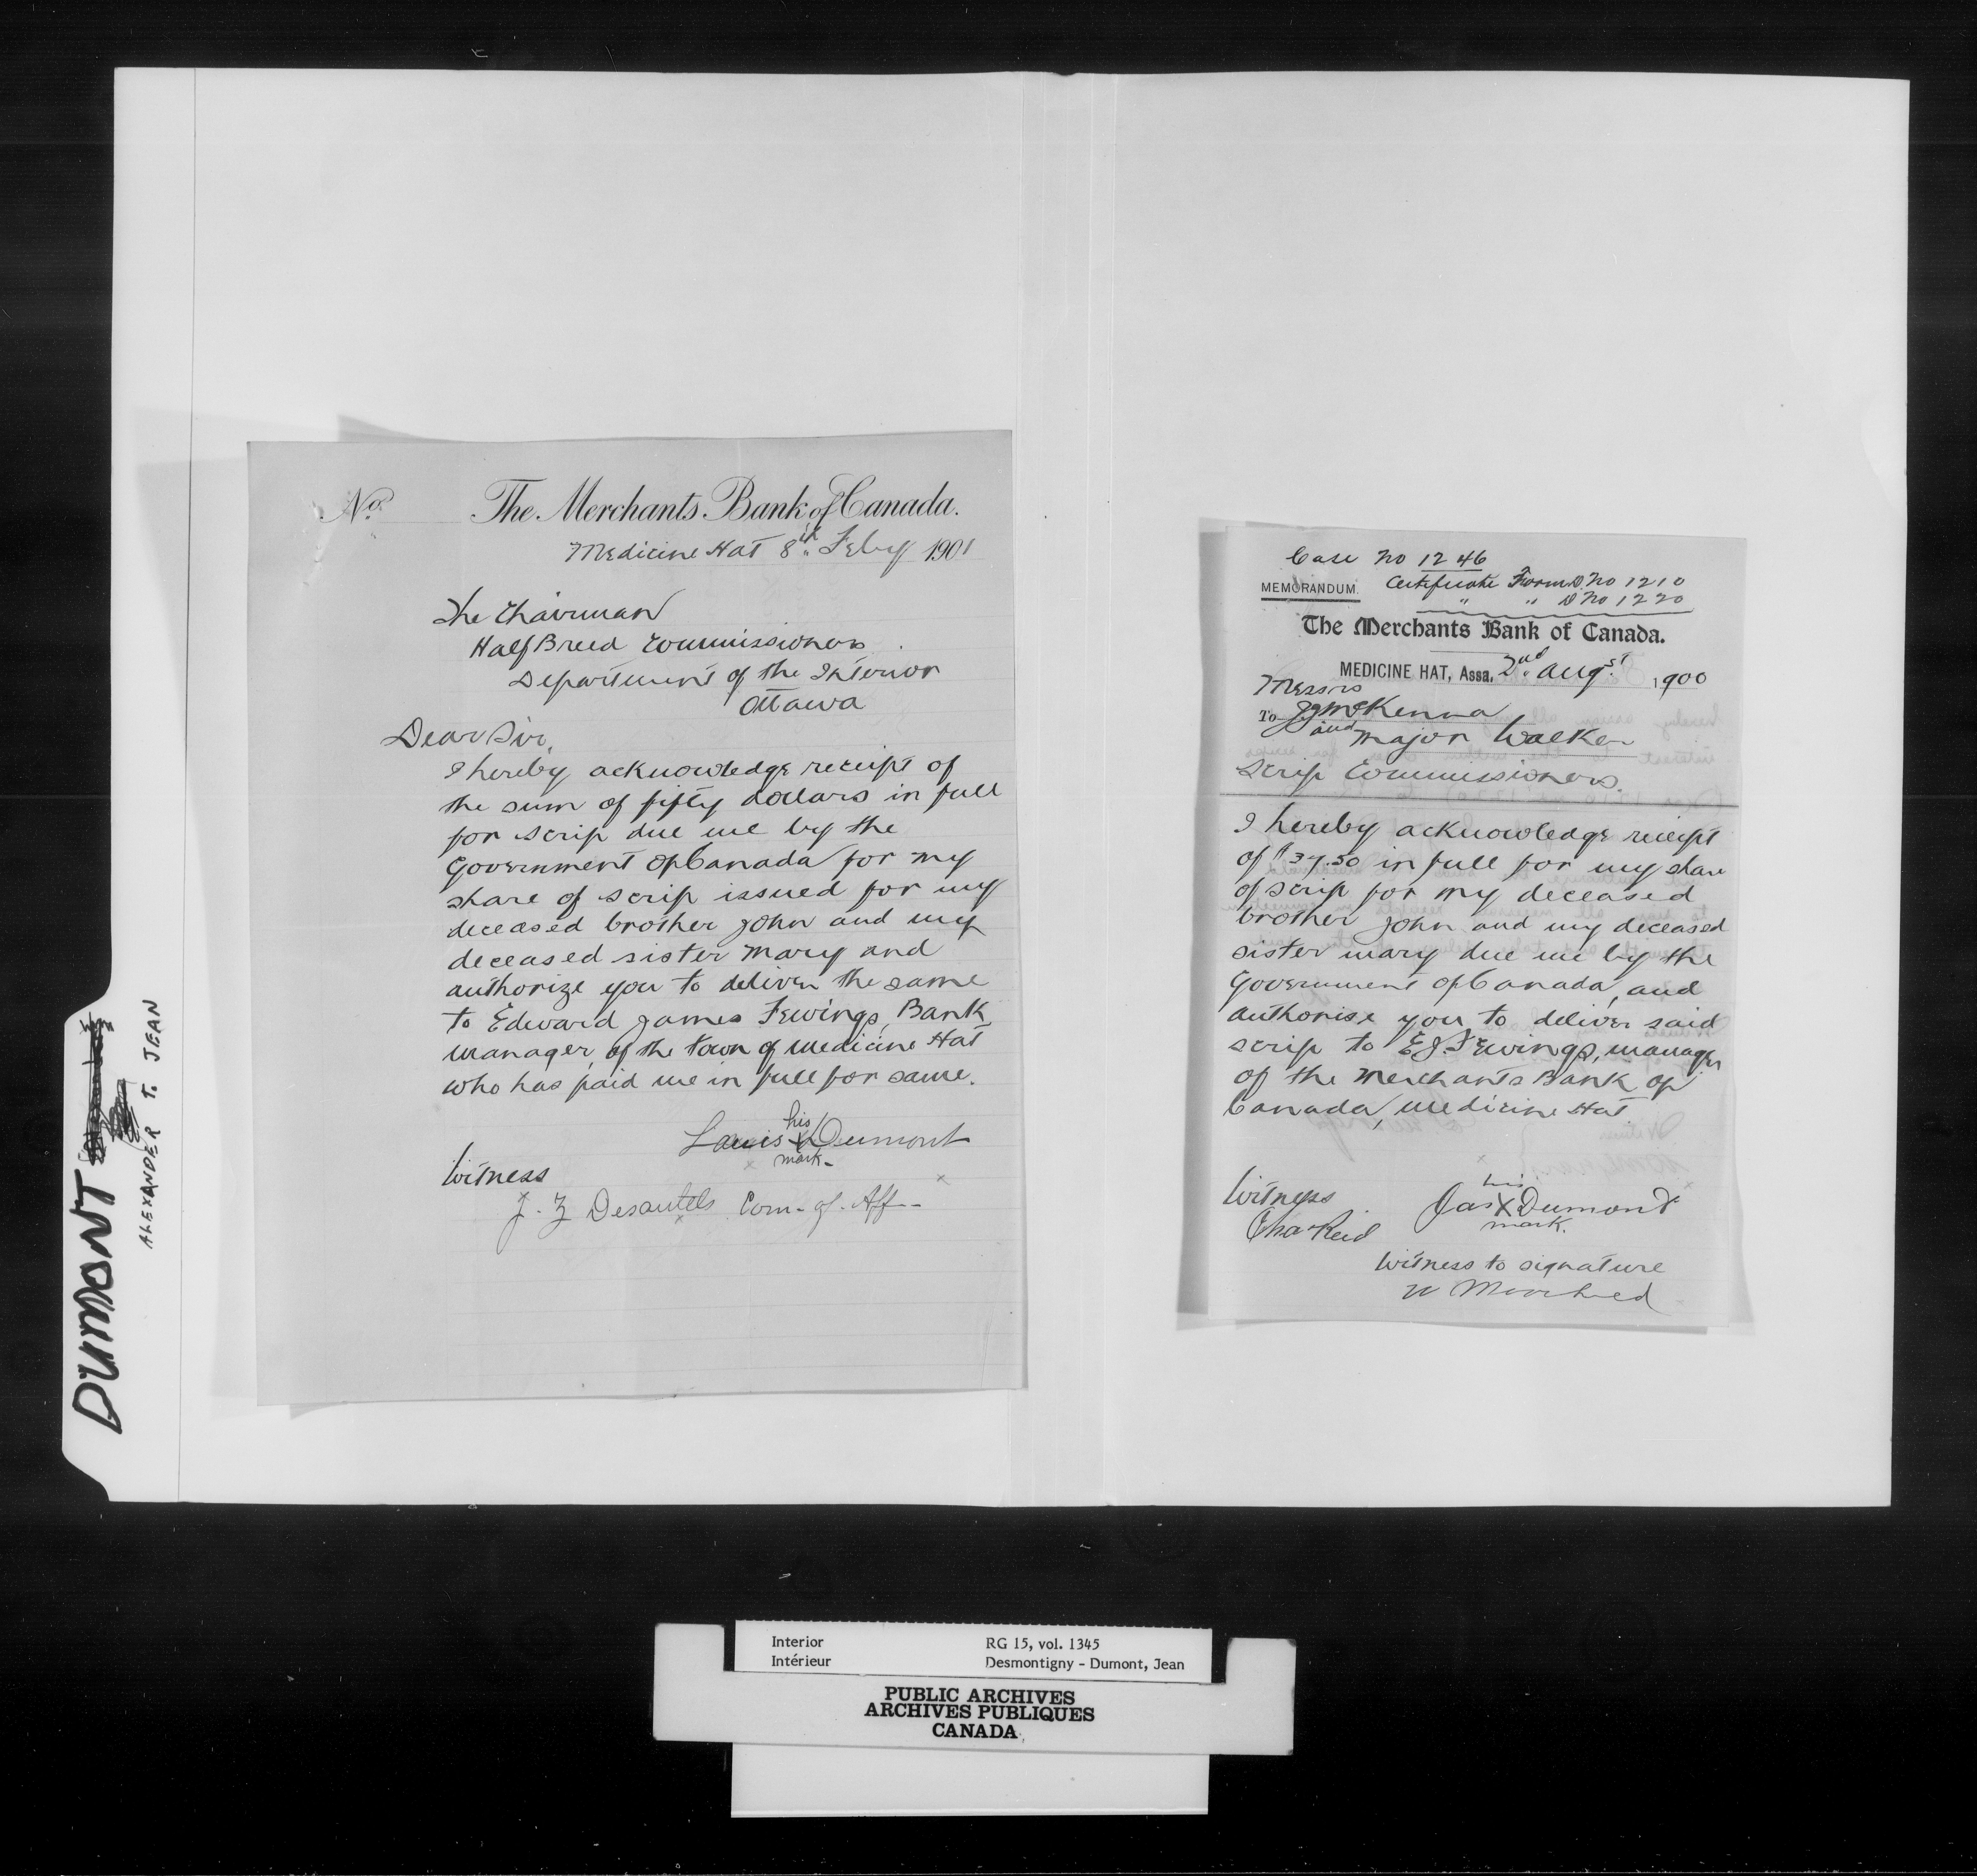 DUMONT
ALEXANDER T. JEAN
No. The Merchants Bank of Canada.
Medicine Hat 8th Feby 1901
The Chairman
Half Breed Commissioners
Department of the Interior
Ottawa
Dear Sir,
I hereby acknowledge receipt of
the sum of fifty dollars in full
for scrip due me by the
Government of Canada for my
share of scrip issued for my
deceased brother John and my
deceased sister Mary and
authorize you to deliver the same
to Edward James Fewings, Bank
manager, of the town of Medicine Hat
who has paid me in full for same.
his
Louis X Dumont
mark
Witness
J. Z Desautels Com. of. Aff.
Case No 1246
MEMORANDUM. Certificate Form D No 1210
" " D No 1220
The Merchants Bank of Canada.
MEDICINE HAT, Assa. 2nd Augst 1900
Messrs
To J J McKenna
and Major Walker
Scrip Commissioners.
I hereby acknowledge receipt
of $37.50 in full for my share
of scrip for my deceased
brother John and my deceased
sister Mary due me by the
Government of Canada, and
authorise you to deliver said
scrip to E. J. Fewings, manager
of the Merchants Bank of
Canada, Medicine Hat
his
Witness Jas X Dumont
mark.
Chas Reid
Witness to signature
Interior RG 15, vol. 1345
Intérieur Desmontigny - Dumont, Jean
PUBLIC ARCHIVES
ARCHIVES PUBLIQUES
CANADA